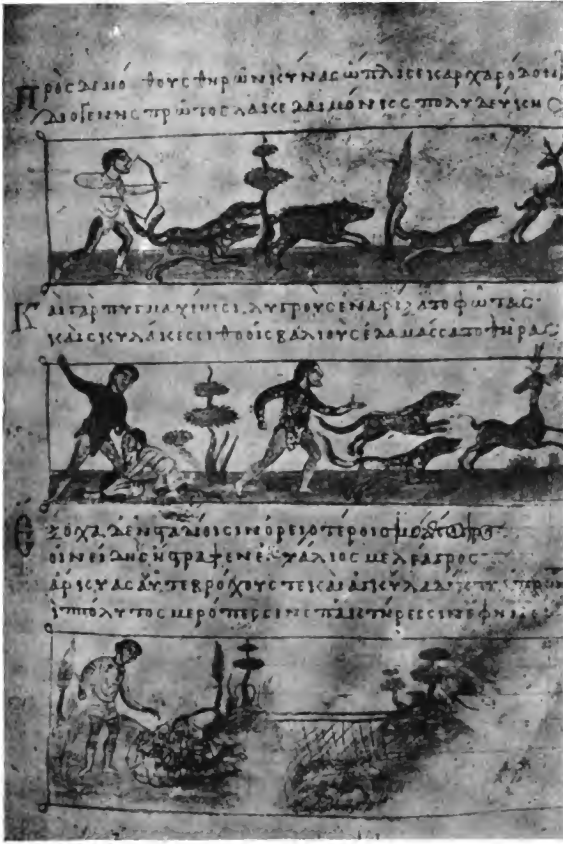 Πρὸς δὲ μόθους θηρῶν κύνας ὥπλισε καρχαρόδον
διογενὴς πρῶτος λακεδαιμόνιος πολυδεύκης
Καὶ γὰρ πυγμαχίηισι λυγροὺς ἐναρίξατο φῶτας·
καὶ σκυλάκεσσι θοοῖς βαλίους ἐδαμάσσατο θῆρας
Ἔξοχα δ' ἐν σταδίοισιν ὀρειοτέροισι
οἰνείδης ἤστραψεν μελέαγρος
ἄρκυας αὖτε βρόχους τε καὶ ἀγκύλα δίκτυα πρῶ
ἱππόλυτος μερόπεσσιν ἐπακτήρεσσιν ἔφηνε